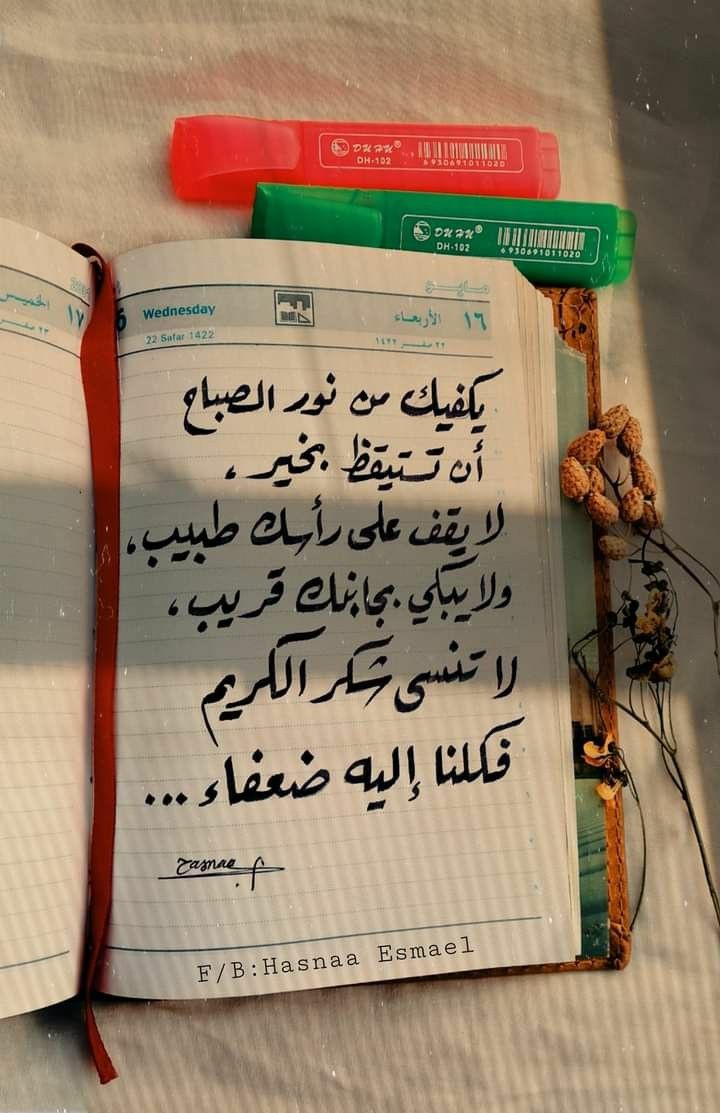 DUHU®
DH-102
6930691011020
DUHU®
DH-102
6930691011020
الخميس ١٧
٢٣ صفر
6 Wednesday
22 Safar 1422
مايو
الأربعاء ١٦
٢٢ صفر ١٤٢٢
يكفيك من نور الصباح
أن تستيقظ بخير ،
لا يقف على رأسك طبيب،
ولا يبكي بجانبك قريب،
لا تنسى شكر الكريم
فكلنا إليه ضعفاء ...
F/B:Hasnaa Esmael